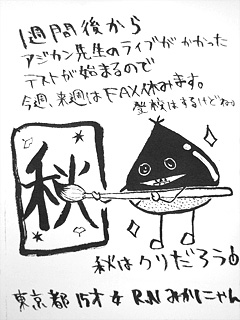 1週間後から
アジカン先生のライブがかかった
テストが始まるので
今週、来週はFAX休みます。
登校はするけどね。
秋
秋はクリだろう
東京都 15才 女 R.N みかにゃん